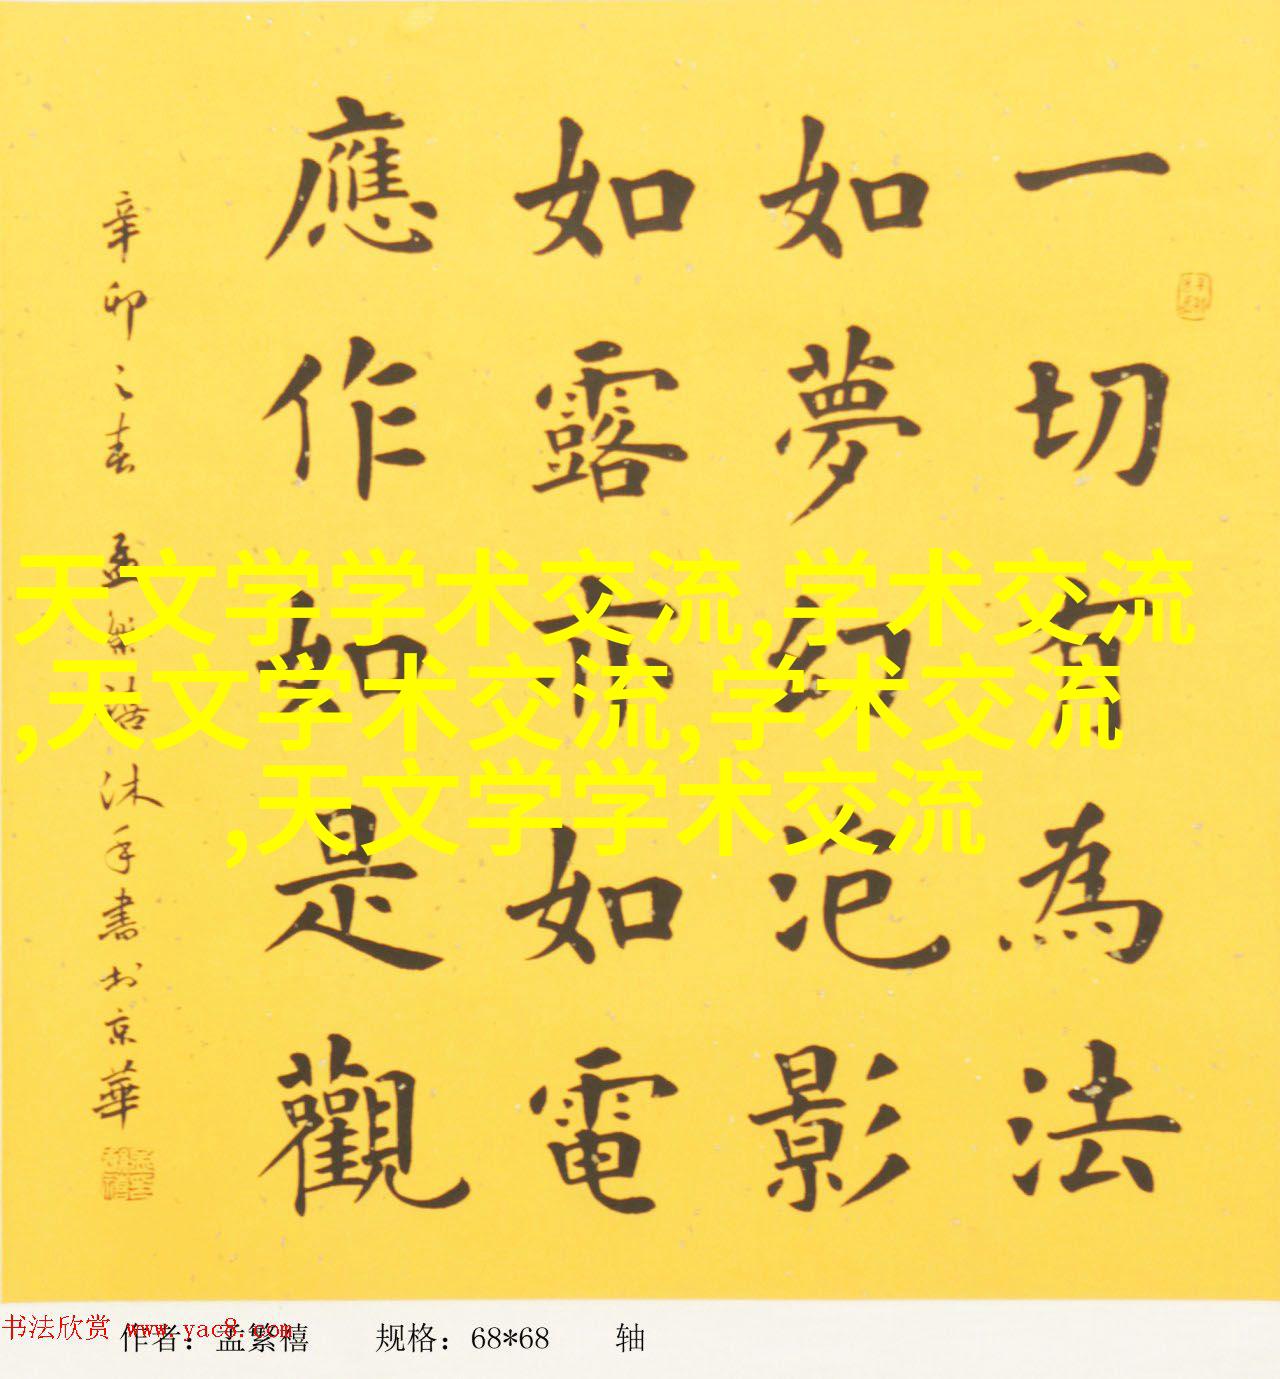 一切有為法
如夢幻泡影
如露亦如電
應作如是觀
辛卯之春 孟繁禧沐手書於京華
天文学学术交流,学术交流
,天文学术交流,学术交流
,天文学学术交流
书法欣赏 www.yac8.com
作者：孟繁禧 规格：68*68 轴